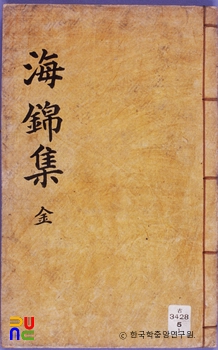 海錦集
金
3428
6
© 한국학중앙연구원